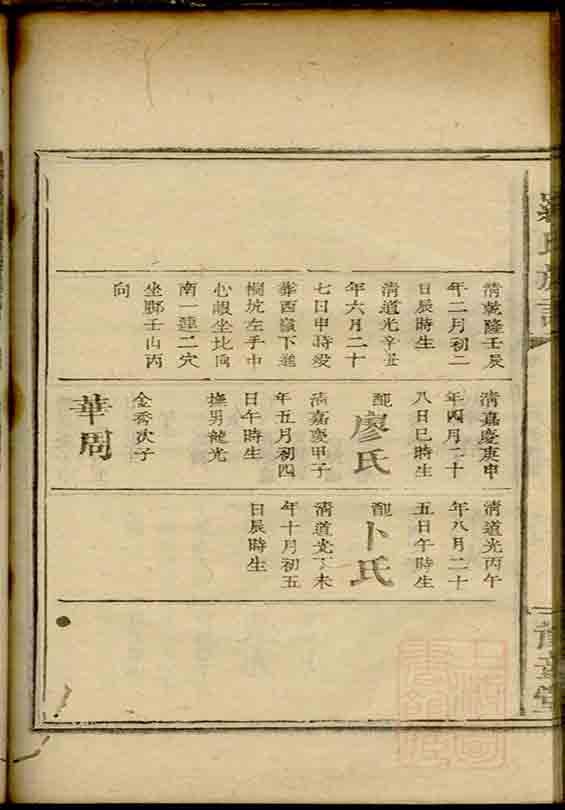 清乾隆壬辰
年二月初二
日辰時生
清道光辛丑
年六月二十
七日申時歿
葬西嶺下進
桐坑左手中
心嘏坐北向
南一連二穴
坐壬山丙
向
清嘉慶庚申
年四月二十
八日巳時生
配
廖氏
清嘉慶甲子
年五月初四
日午時生
撫男龍光
金秀次子
華周
清道光丙午
年八月二十
五日午時生
配
卜氏
清道光丁未
年十月初五
日辰時生
氏族
堂
上海圖書館藏